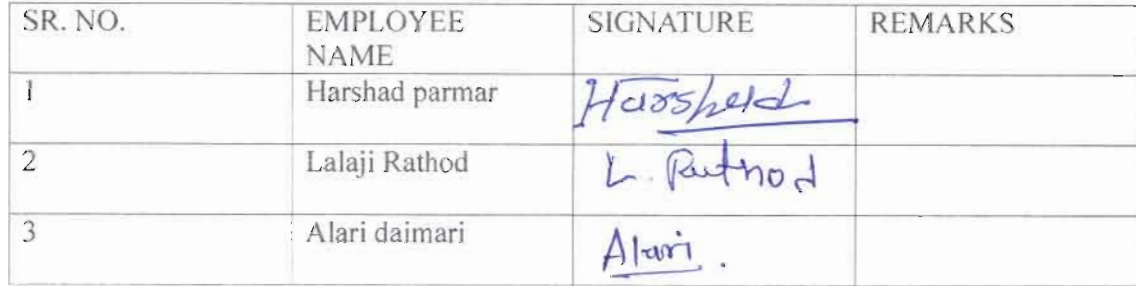 SR. NO. EMPLOYEE NAME SIGNATURE REMARKS
1 Harshad parmar Harshad
2 Lalaji Rathod L. Rathod
3 Alari daimari Alari.